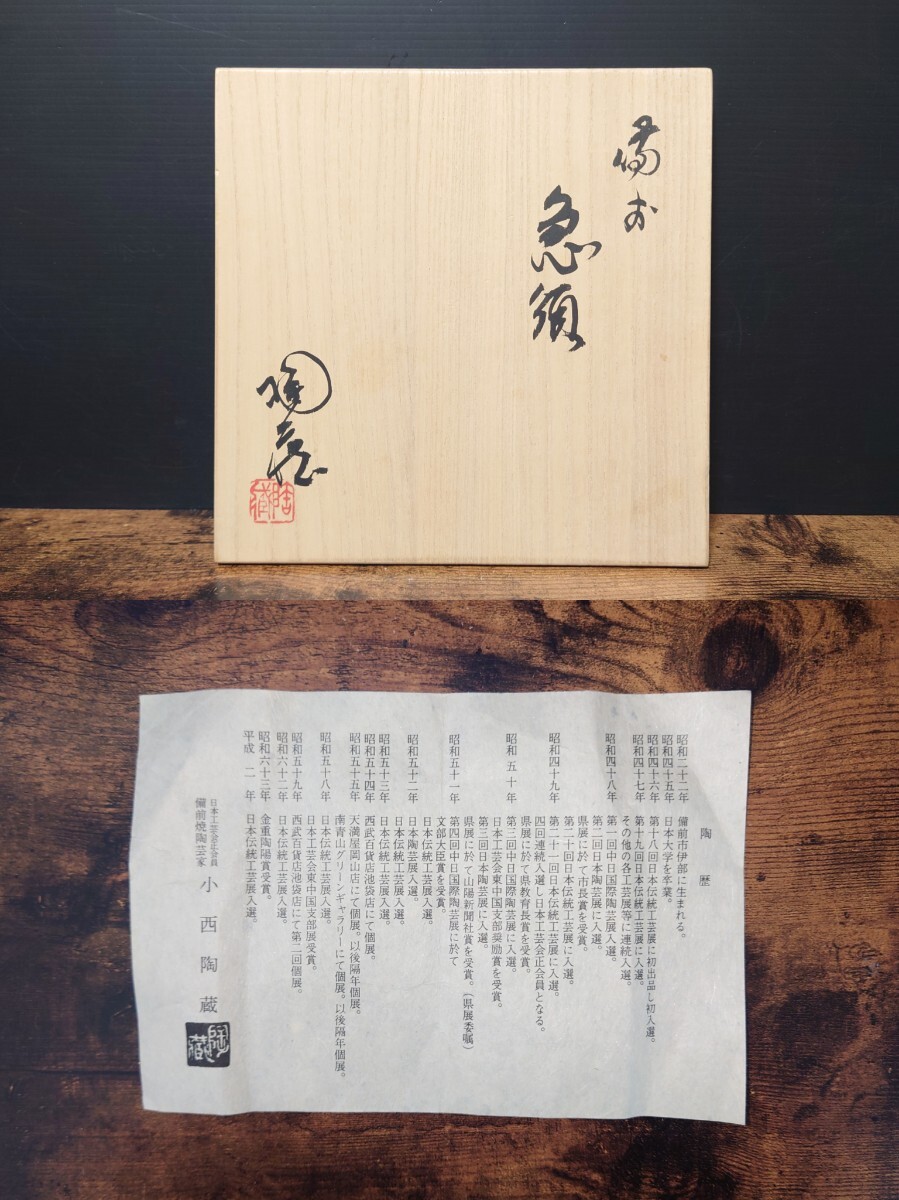 備前
急須
陶蔵
陶蔵
陶歴
昭和二十二年 備前市伊部に生まれる。
昭和四十五年 日本大学を卒業。
昭和四十六年 第十八回日本伝統工芸展に初出品し初入選。
昭和四十七年 第十九回日本伝統工芸展に入選。
その他の各工芸展等に連続入選。
昭和四十八年 第一回中日国際陶芸展入選。
第二回日本陶芸展に入選。
県展に於て市長賞を受賞。
第二十回日本伝統工芸展に入選。
昭和四十九年 第二十一回日本伝統工芸展に入選。
四回連続入選し日本工芸会正会員となる。
県展に於て県教育長賞を受賞。
昭和五十年 第三回中日国際陶芸展に入選。
日本工芸会東中国支部奨励賞を受賞。
第三回日本陶芸展に入選。
県展に於て山陽新聞社賞を受賞。(県展委嘱)
昭和五十一年 第四回中日国際陶芸展に於て
文部大臣賞を受賞。
日本伝統工芸展入選。
昭和五十二年 日本陶芸展入選。
日本伝統工芸展入選。
昭和五十三年 日本伝統工芸展入選。
昭和五十四年 西武百貨店池袋店にて個展。
昭和五十五年 天満屋岡山店にて個展。以後隔年個展。
南青山グリーンギャラリーにて個展。以後隔年個展。
昭和五十八年 日本伝統工芸展入選。
日本工芸会東中国支部展受賞。
昭和五十九年 西武百貨店池袋店にて第二回個展。
昭和六十二年 日本伝統工芸展入選。
昭和六十三年 金重陶陽賞受賞。
平成二年 日本伝統工芸展入選。
日本工芸会正会員
備前焼陶芸家 小西陶蔵
陶蔵